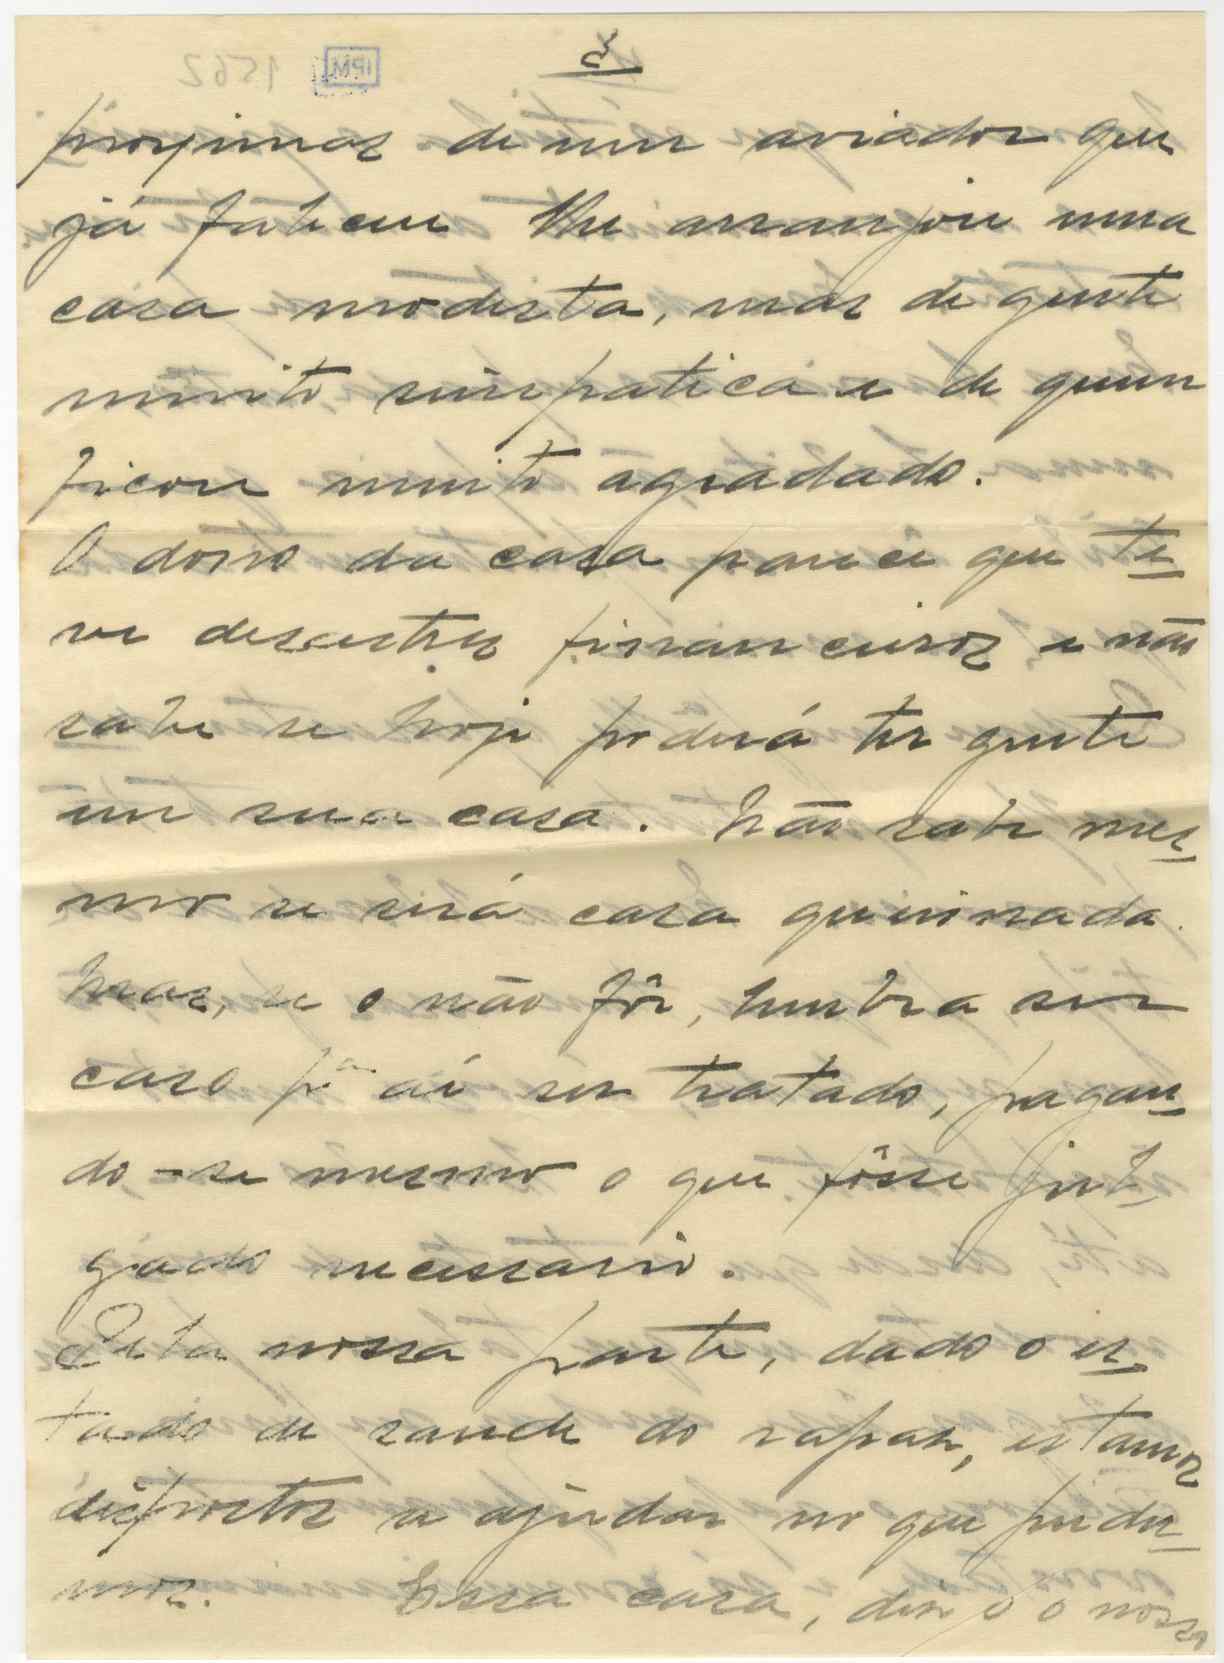 3
proximos de um aviador que
já faleceu lhe arranjou uma
casa modesta, mas de gente
muito simpatica e de quem
ficou muito agradado.
O dono da casa parece que te
ve desastres financeiros, e não
sabe se hoje poderá ter gente
em sua casa. Não sabe mes
mo se será casa queimada.
Mas, se o não fôr, lembra ser
caso pª aí ser tratado, pagan
do-se mesmo o que fôsse jul
gado necessario.
Pela nossa parte, dado o es
tado de saude do rapaz, estamos
dispostos a ajudar no que puder
mos. Essa casa, diz o nosso
IPM
1562